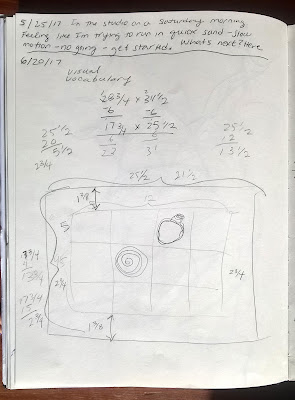 5/25/17 In the studio on a Saturday morning
Feeling like I'm trying to run in quick sand - slow
motion - no going - get started. What's next? Here
6/20/17
visual
vocabulary
x 31 1/2
-6 -6
17 3/4 x 25 1/2
25 1/2
20
5 1/2
2 3/4
25 1/2
12
13 1/2
25 1/2 21 1/2
1 7/8
12
5
2 3/4
2 3/4
17 3/4
15
2 3/4
1 3/8